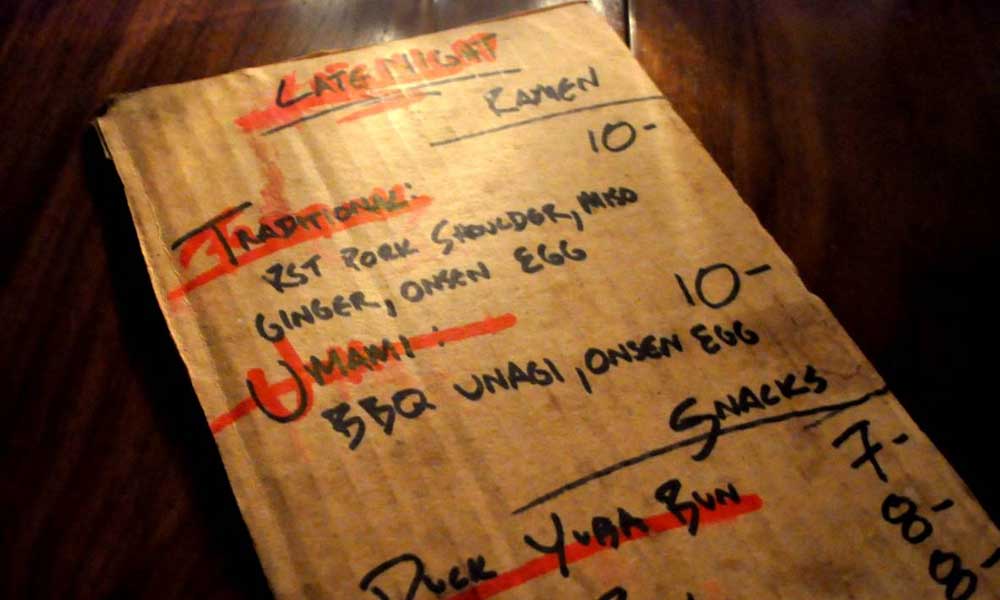 LATE NIGHT
RAMEN
10-
TRADITIONAL:
RST PORK SHOULDER, MISO
GINGER, ONSEN EGG
10-
UMAMI:
BBQ UNAGI, ONSEN EGG
SNACKS
7-
DUCK YUBA BUN
8-
8-